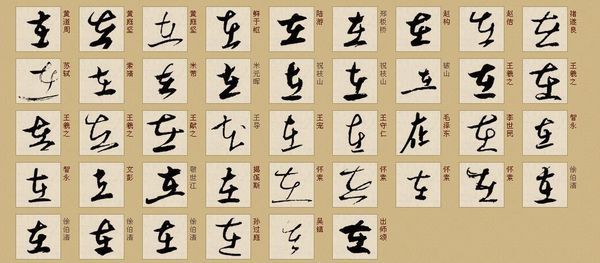 在 黄道周 在 黄庭坚 在 黄庭坚 在 鲜于枢 在 陆游 在 郑板桥 在 赵构 在 赵佶 在 褚遂良
在 苏轼 在 索靖 在 米芾 在 米元晖 在 祝枝山 在 祝枝山 在 破山 在 王羲之 在 王羲之
在 王羲之 在 王羲之 在 王献之 在 王导 在 王宠 在 王守仁 在 毛泽东 在 李世民 在 智永
在 智永 在 文彭 在 世江 在 揭傒斯 在 怀素 在 怀素 在 怀素 在 怀素 在 徐伯清
在 徐伯清 在 徐伯清 在 徐伯清 在 孙过庭 在 吴镇 在 出师颂